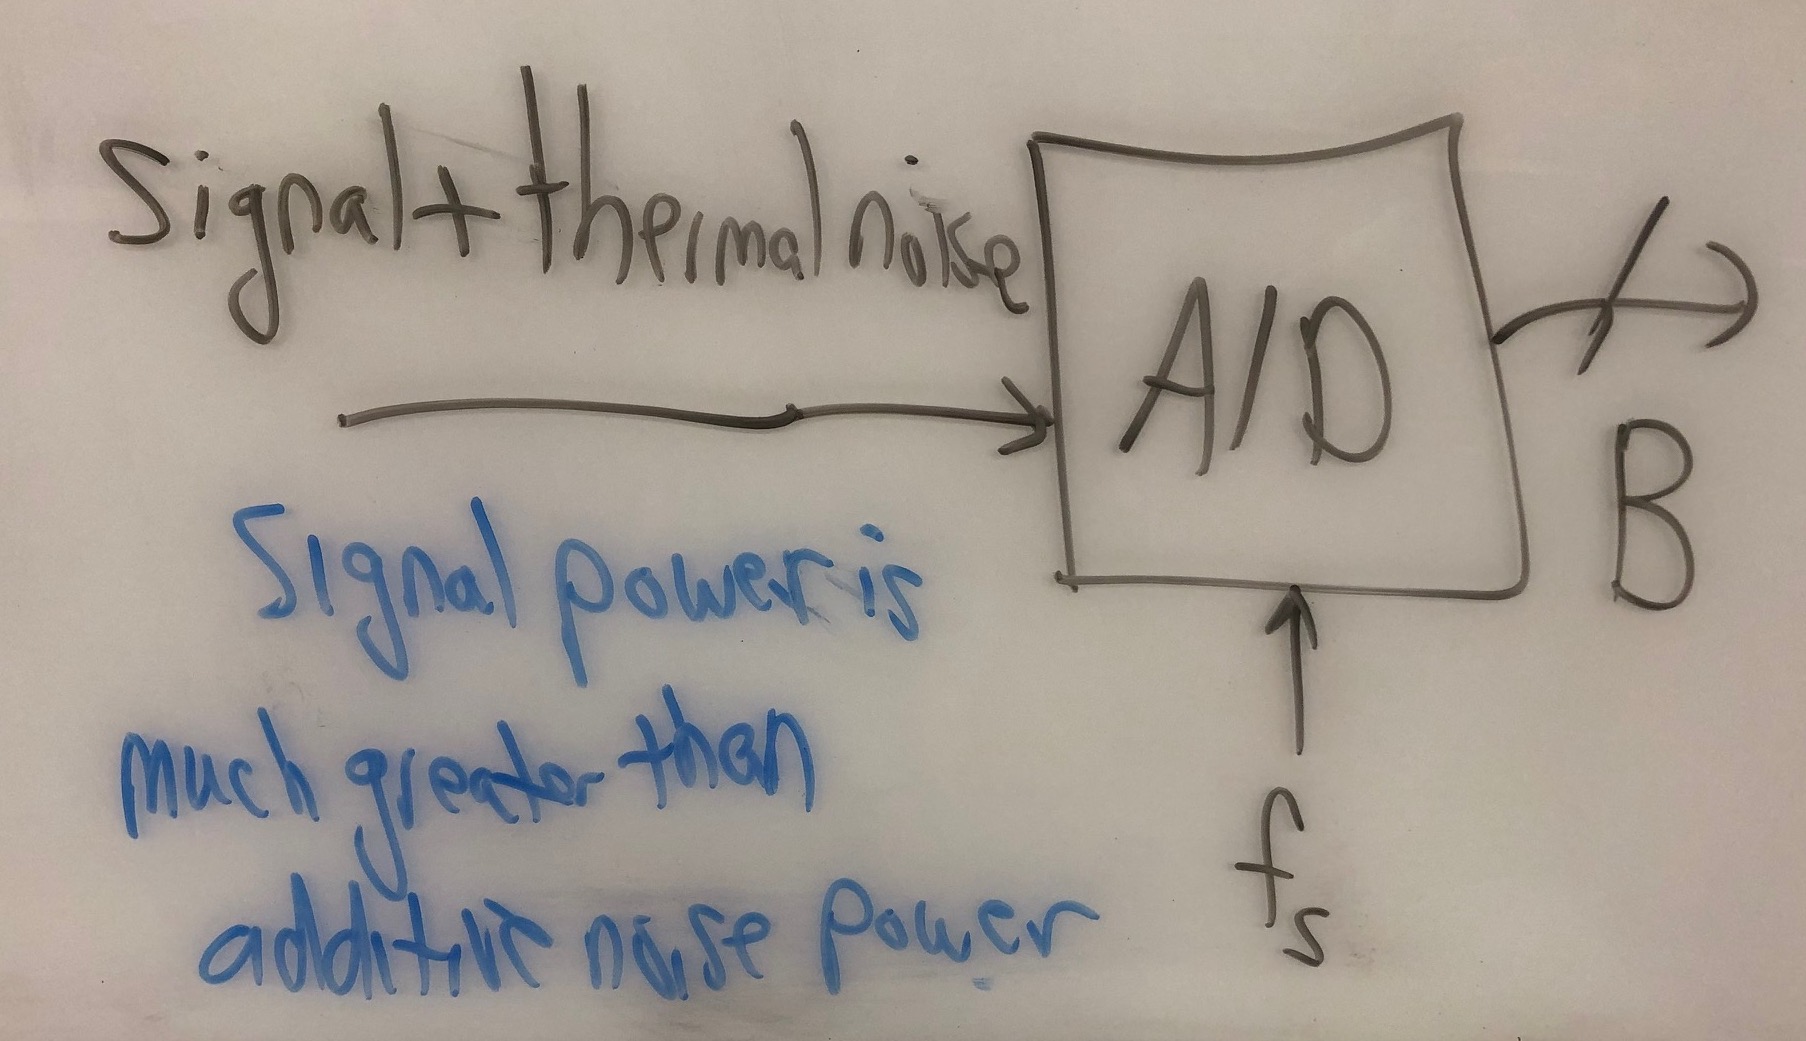 Signal + thermal noise
A/D
B
Signal power is
much greater than
additive noise power
fs